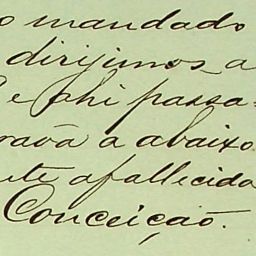 o mandado
dirijimos a
e ahi passa-
rava a abaixo
ete a fallecida
Conceição.